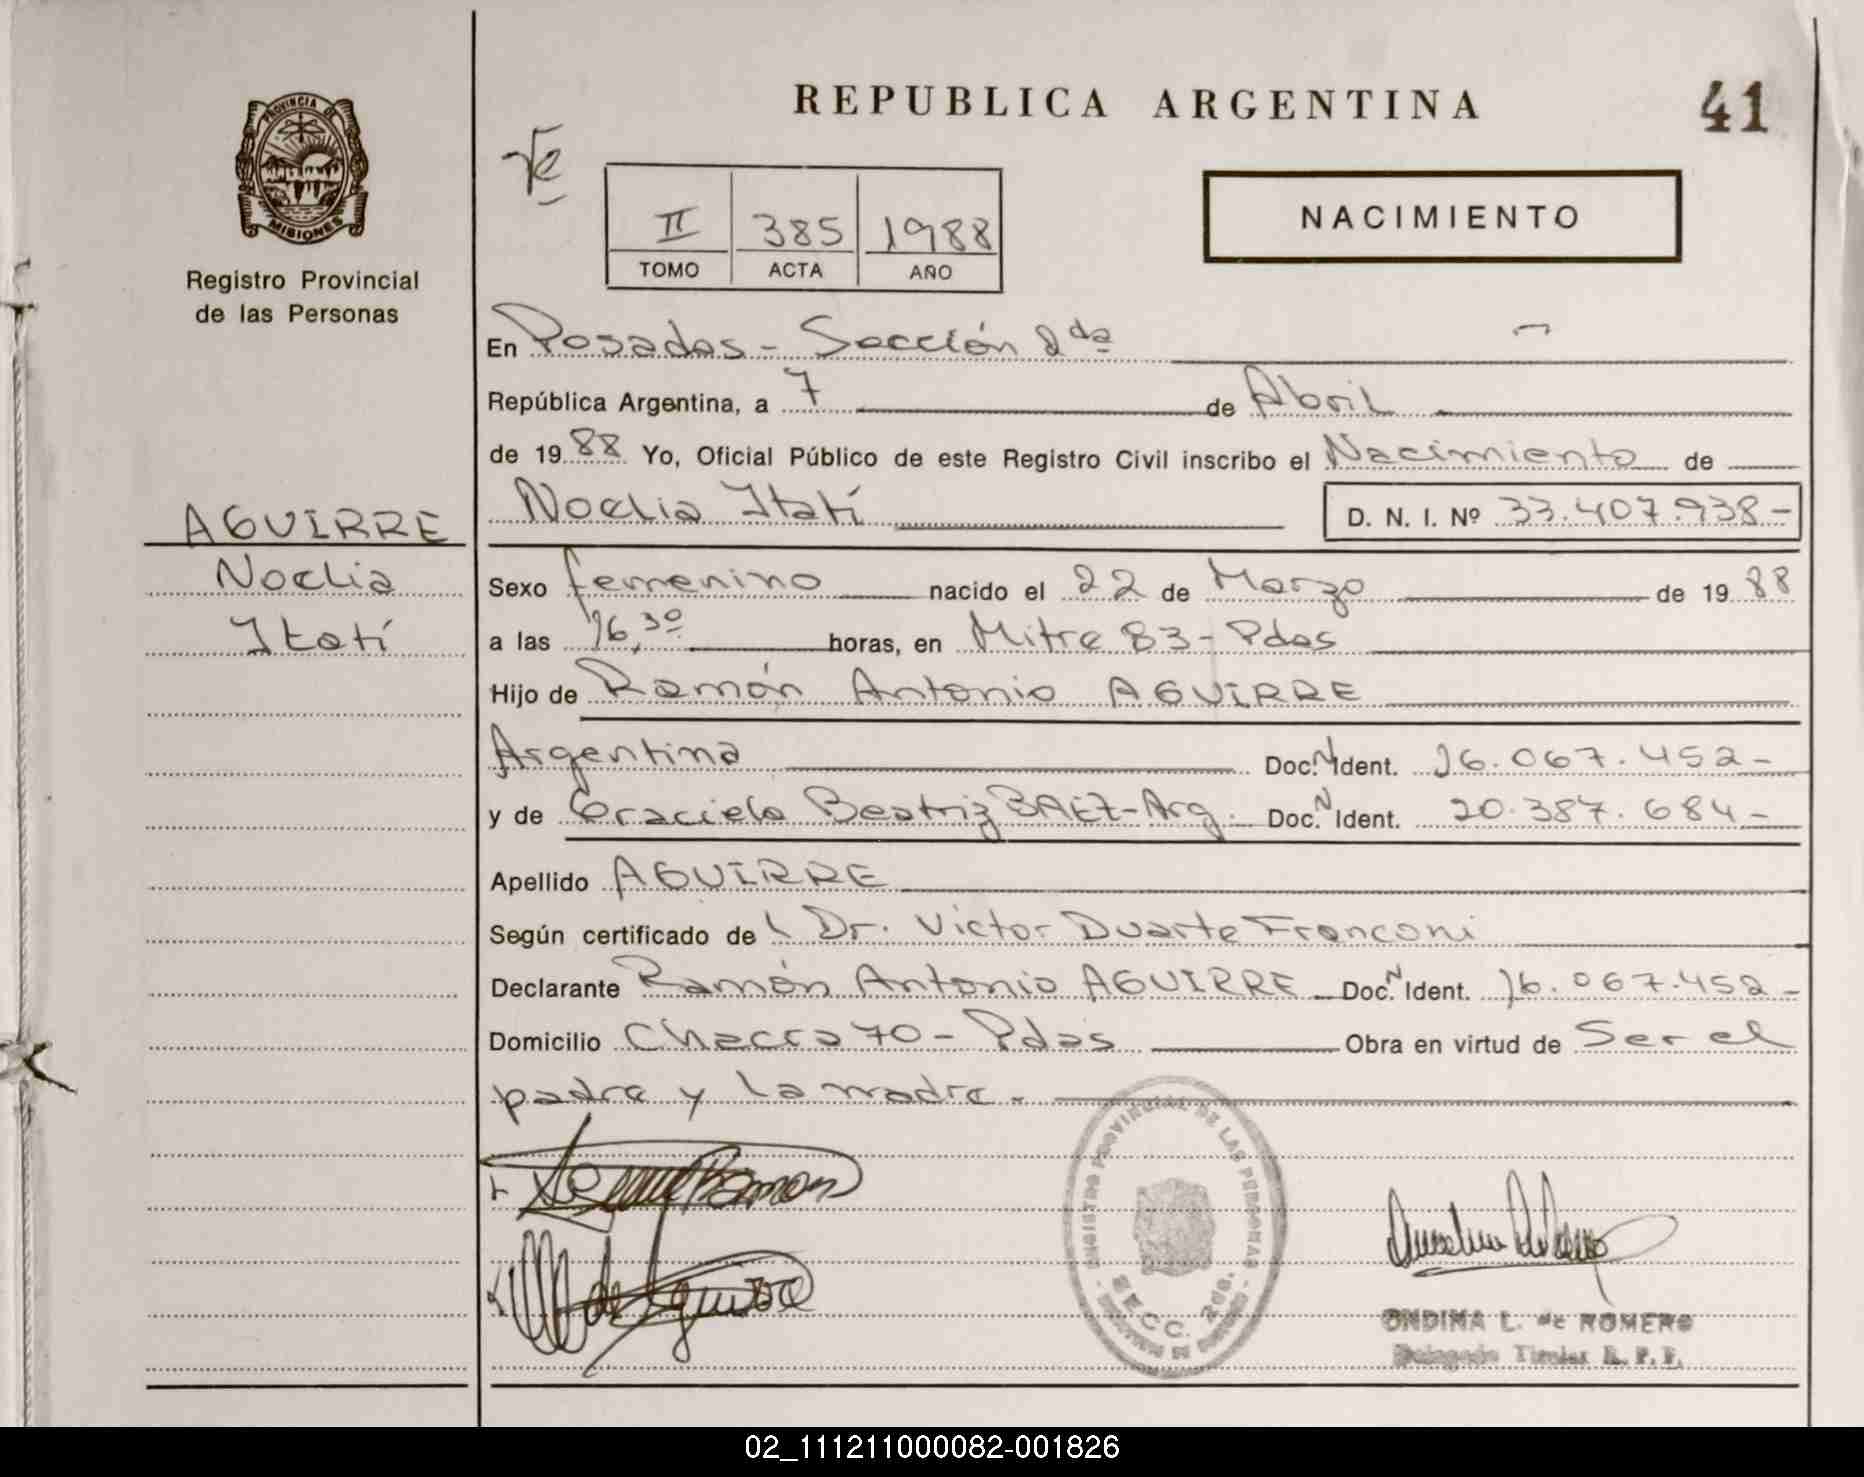 REPUBLICA ARGENTINA
41
PROVINCIA DE
MISIONES
Registro Provincial
de las Personas
II 385 1988
TOMO ACTA AÑO
NACIMIENTO
En Posadas - Sección 2da
República Argentina, a 7 de Abril
de 1988 Yo, Oficial Público de este Registro Civil inscribo el Nacimiento de
AGUIRRE
Noelia
Itatí
Noelia Itatí D. N. I. Nº 33.407.938-
Sexo femenino nacido el 22 de Marzo de 1988
a las 16,30 horas, en Mitre 83 - Pdas
Hijo de Ramón Antonio AGUIRRE
Argentina Doc. N Ident. 16.067.452-
y de Graciela Beatriz BAEZ-Arg. Doc. N Ident. 20.387.684-
Apellido AGUIRRE
Según certificado de l Dr. Victor Duarte Franconi
Declarante Ramón Antonio AGUIRRE Doc. N Ident. 16.067.452-
Domicilio Chacra 70 - Pdas Obra en virtud de Ser el
padre y la madre.
REGISTRO PROVINCIAL DE LAS PERSONAS
SECC. 2da.
ONDINA L. de ROMERO
02_111211000082-001826